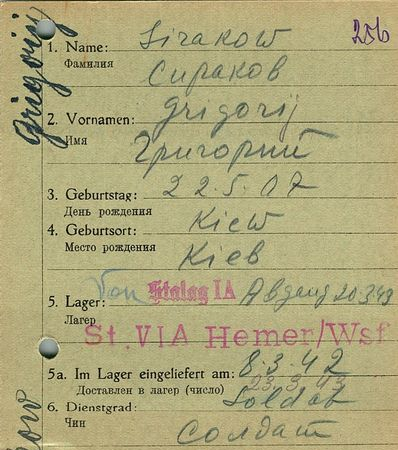 Grigorij
256
1. Name: Sirakow
Фамилия Сираков
2. Vornamen: Grigorij
Имя Григорий
3. Geburtstag: 22.5.07
День рождения
4. Geburtsort: Kiew
Место рождения Kieв
Von Stalag IA Abgang 20.3.43
5. Lager:
Лагерь
St. VIA Hemer/Wsf
5a. Im Lager eingeliefert am: 8.3.42
Доставлен в лагерь (число) 23.3.43
6. Dienstgrad: Soldat
Чин Солдат